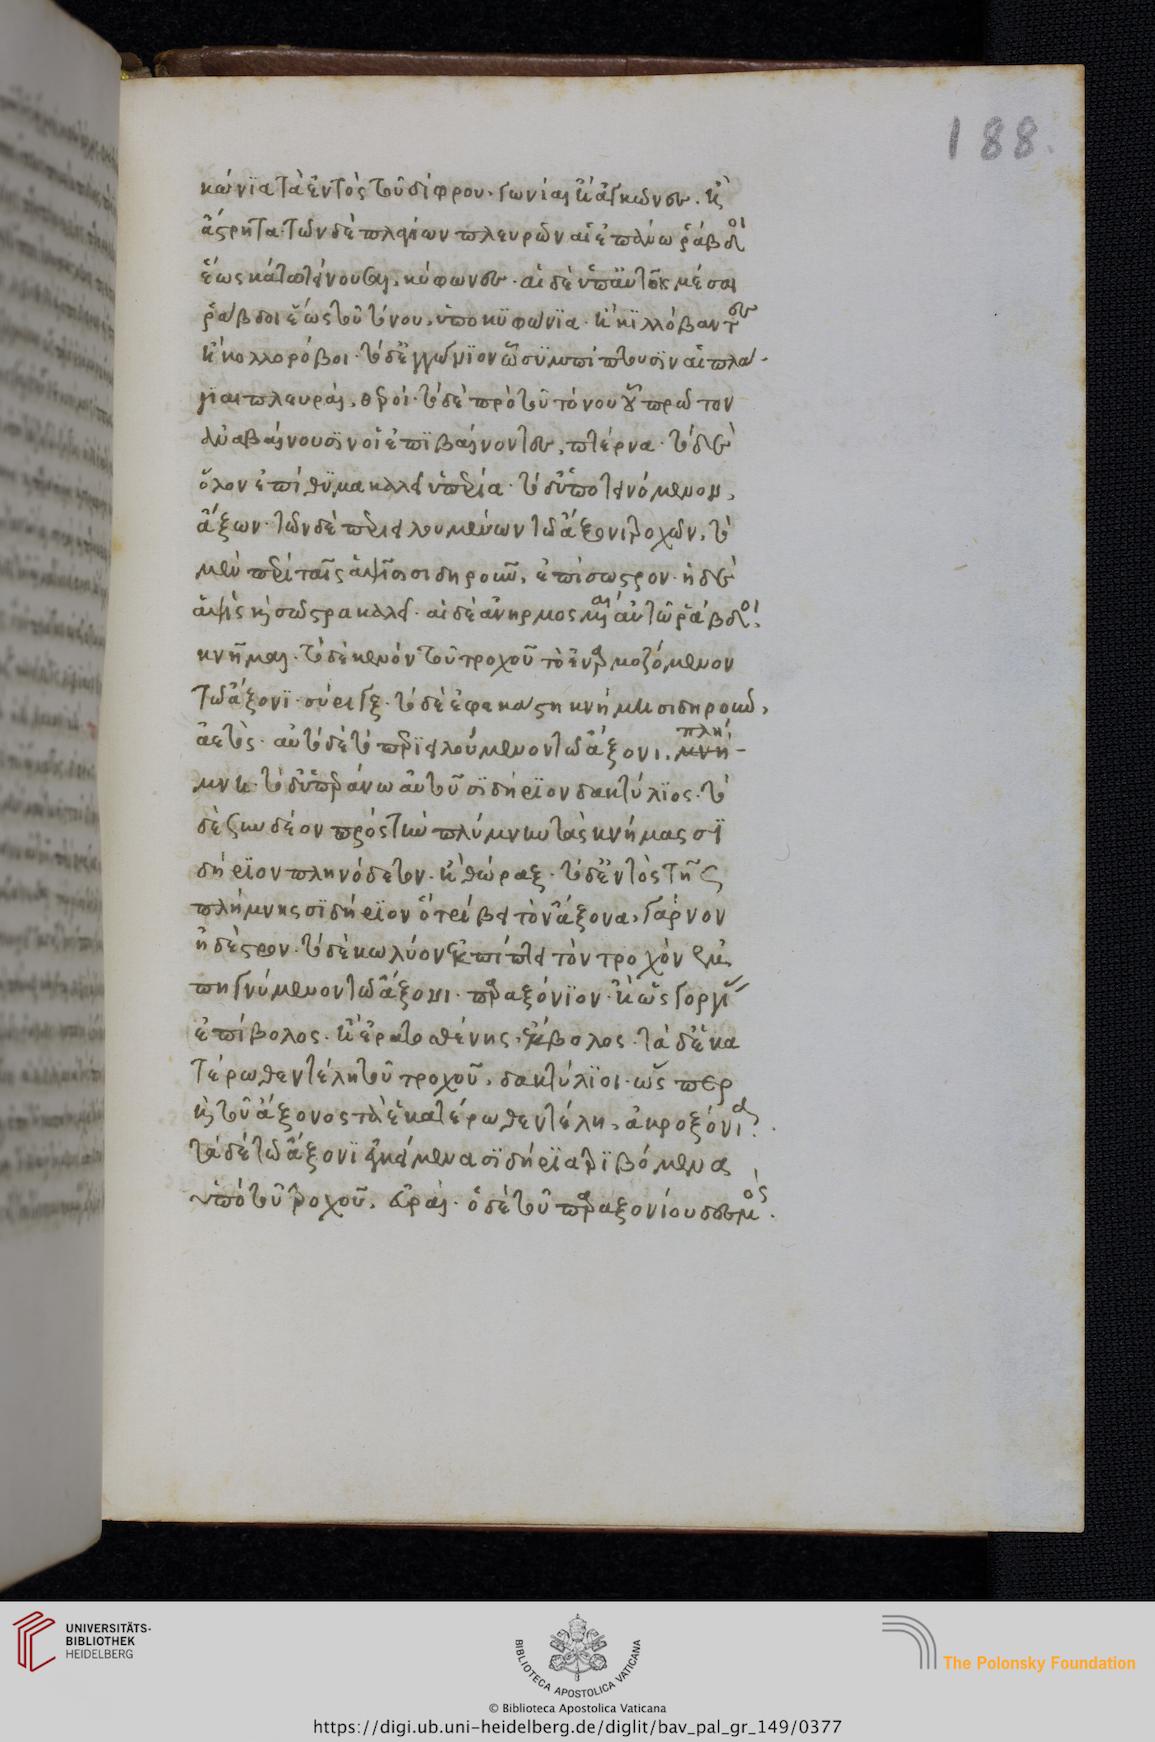 188.
κώνϊα τὰ ἐντὸς τοῦ δίφρου. γωνίαι κ' ἀγκῶνες. κ'
ἄστρητα. τῶν δὲ πλαγίων πλευρῶν αἱ ἐπάνω ῥάβδοι
ἕως κάτω τείνουσαι, κύφωνες. αἱ δὲ ὑπ' αὐτοῖς μέσαι
ῥάβδοι ἕως τοῦ τόνου, ὑποκϋφώνϊα. κ' κϊλλόβαντες
κ' κολλορόβοι. τὸ δὲ γωνϊον ὧ σϋμπίπτουσϊν αἱ πλά-
γϊαι πλευραί, θρόοι. τὸ δὲ πρὸ τοῦ τόνου οὗ πρῶτον
ἀναβαίνουσϊν οἱ ἐπϊβαίνοντες, πτέρνα. τὸ δὲ
ὅλον ἐπίθϋμα καλεῖ ὑπερία. τὸ δ' ὑποτεινόμενον,
ἄξων. τῶν δὲ περιειλουμένων τῶ ἄξονι τροχῶν, τὸ
μὲν περὶ ταῖς ἁψῖσι σιδηροῦν, ἐπίσωτρον. ἡ δὲ
ἁψὶς κ' σῶστρα καλεῖ. αἱ δὲ ἀνηρμοσμέναι αὐτῶ ῥάβδοι.
κνῆμαι. τὸ δὲ κενὸν τοῦ τροχοῦ τὸ ἐναρμοζόμενον
τῶ ἄξονϊ. σύριγξ. τὸ δὲ ἐφ' εκάστη κνήμη σιδηροῦν,
ἀετὸς. αὐτὸ δὲ τὸ περϊειλούμενον τῶ ἄξονι, πλή-
μνη. τὸ δ' ὑπεράνω αὐτοῦ σϊδήρϊον δακτύλϊος. τὸ
δὲ συνδέον πρὸς τὴν πλύμνην τὰς κνήμας σϊ
δήρϊον πληνόδετον. κ' θώραξ. τὸ δ' ἐντὸς τῆς
πλήμνης σϊδήρϊον ὃ τρίβει τὸν ἄξονα, γάρνον
ἢ δέστρον. τὸ δὲ κωλύον ἐκπίπτειν τὸν τροχὸν ἐμ
πηγνύμενον τῶ ἄξονι. παραξόνϊον. κ' ὡς γοργί
ἐπίβολος. κ' ἐρατοσθένης, ἔμβολος. τὰ δ' ἑκα
τέρωθεν τέλη τοῦ τροχοῦ, δακτύλϊοι. ὥσπερ
κ' τοῦ ἄξονος τὰ ἑκατέρωθεν τέλη, ἀκροξόνια.
τὰ δὲ τῶ ἄξονϊ ἐγκείμενα σϊδήρϊα τρϊβόμενα
ὑπὸ τοῦ τροχοῦ, εὐραί. ὁ δὲ τοῦ παραξονίου δεσμὸς.
UNIVERSITÄTS-
BIBLIOTHEK
HEIDELBERG
BIBLIOTECA APOSTOLICA VATICANA
The Polonsky Foundation
© Biblioteca Apostolica Vaticana
https://digi.ub.uni-heidelberg.de/diglit/bav_pal_gr_149/0377